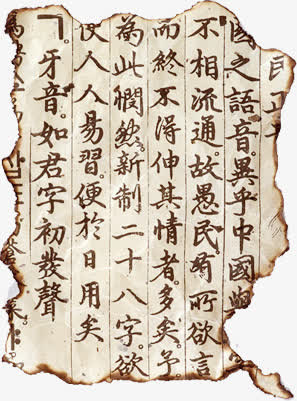 民正
國之語音。異乎中國。與
不相流通。故愚民。有所欲言
而終不得伸其情者多矣。予
為此憫然。新制二十八字。欲
使人人易習。便於日用矣
ㄱ。牙音。如君字初發聲